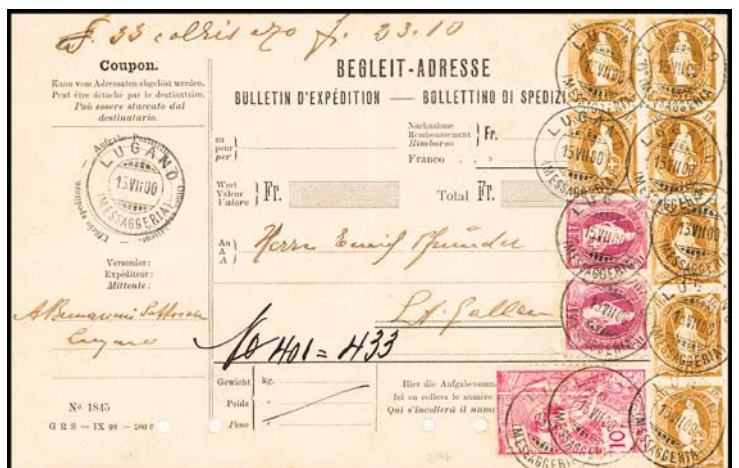 33 colli a 70 fr. 23.10
Coupon.
Kann vom Adressaten abgelöst werden.
Peut être détaché par le destinataire.
Può essere staccato dal
destinatario.
LUGANO
15.VII.00
(MESSAGGERIA)
Ufficio speditore.
Versender:
Expéditeur:
Mittente:
Lugano
Nº 1845
G R S — IX 98 — 500
BEGLEIT-ADRESSE
BULLETIN D'EXPÉDITION — BOLLETTINO DI SPEDIZI
zu
pour
per
Nachnahme
Remboursement Fr.
Rimborso
Franco
Wert
Valeur Fr.
Valore
Total Fr.
An
A
A
Herrn Emil
St. Gallen
No 401 = 433
Gewicht kg.
Poids
Peso
Hier die Aufgabenum
Ici on collera le numéro
Qui s'incollerà il nume
LUGANO
15.VII.00
(MESSAGGERIA)
10